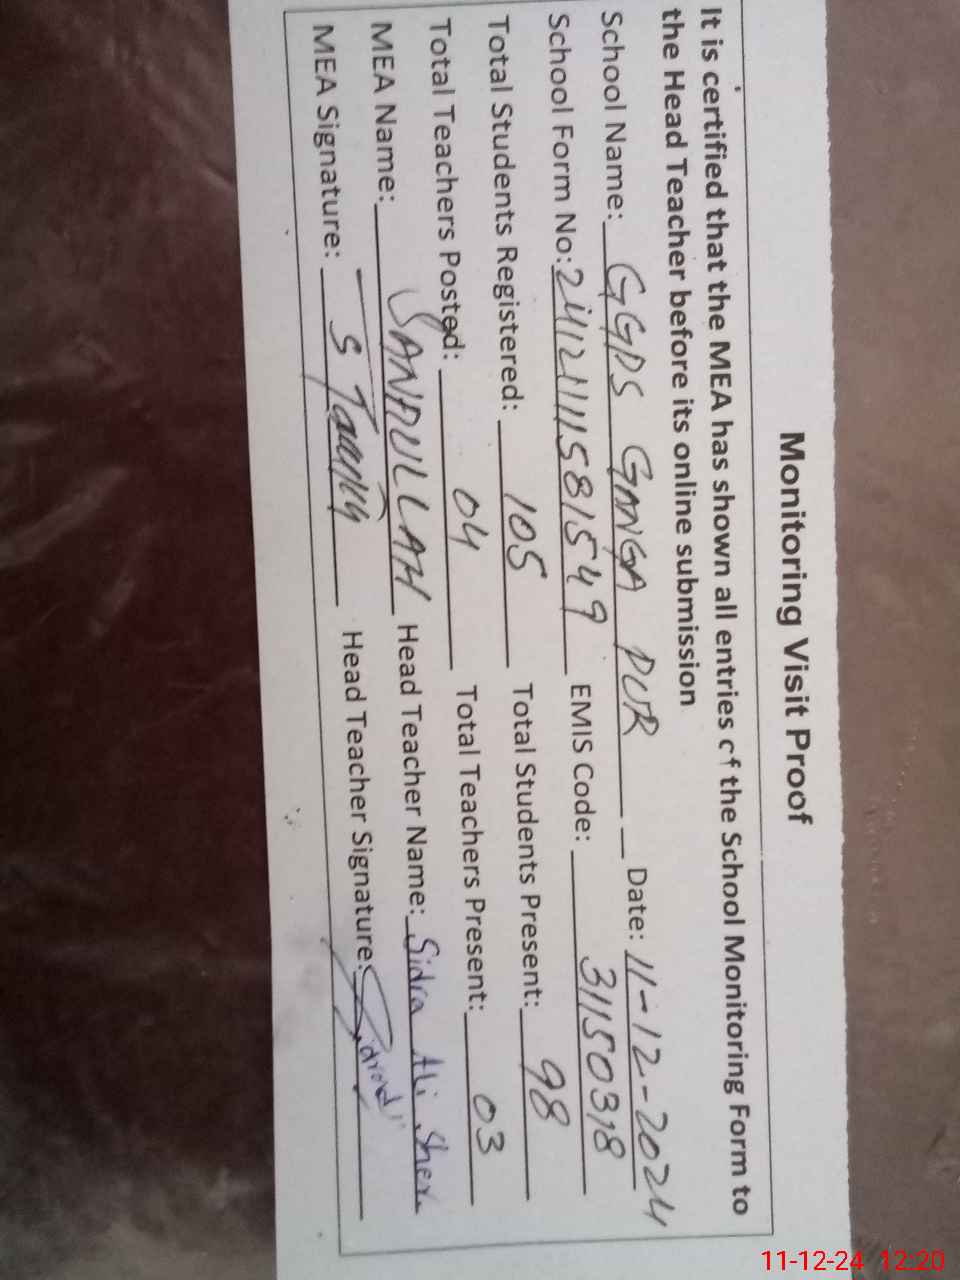 Monitoring Visit Proof
It is certified that the MEA has shown all entries of the School Monitoring Form to
the Head Teacher before its online submission
School Name: GGPS GANGA PUR Date: 11-12-2024
School Form No: 24121111581549 EMIS Code: 31150318
Total Students Registered: 105 Total Students Present: 98
Total Teachers Posted: 04 Total Teachers Present: 03
MEA Name: SANAULLAH Head Teacher Name: Sidra Ali Sher
MEA Signature: Head Teacher Signature:
11-12-24 12:20